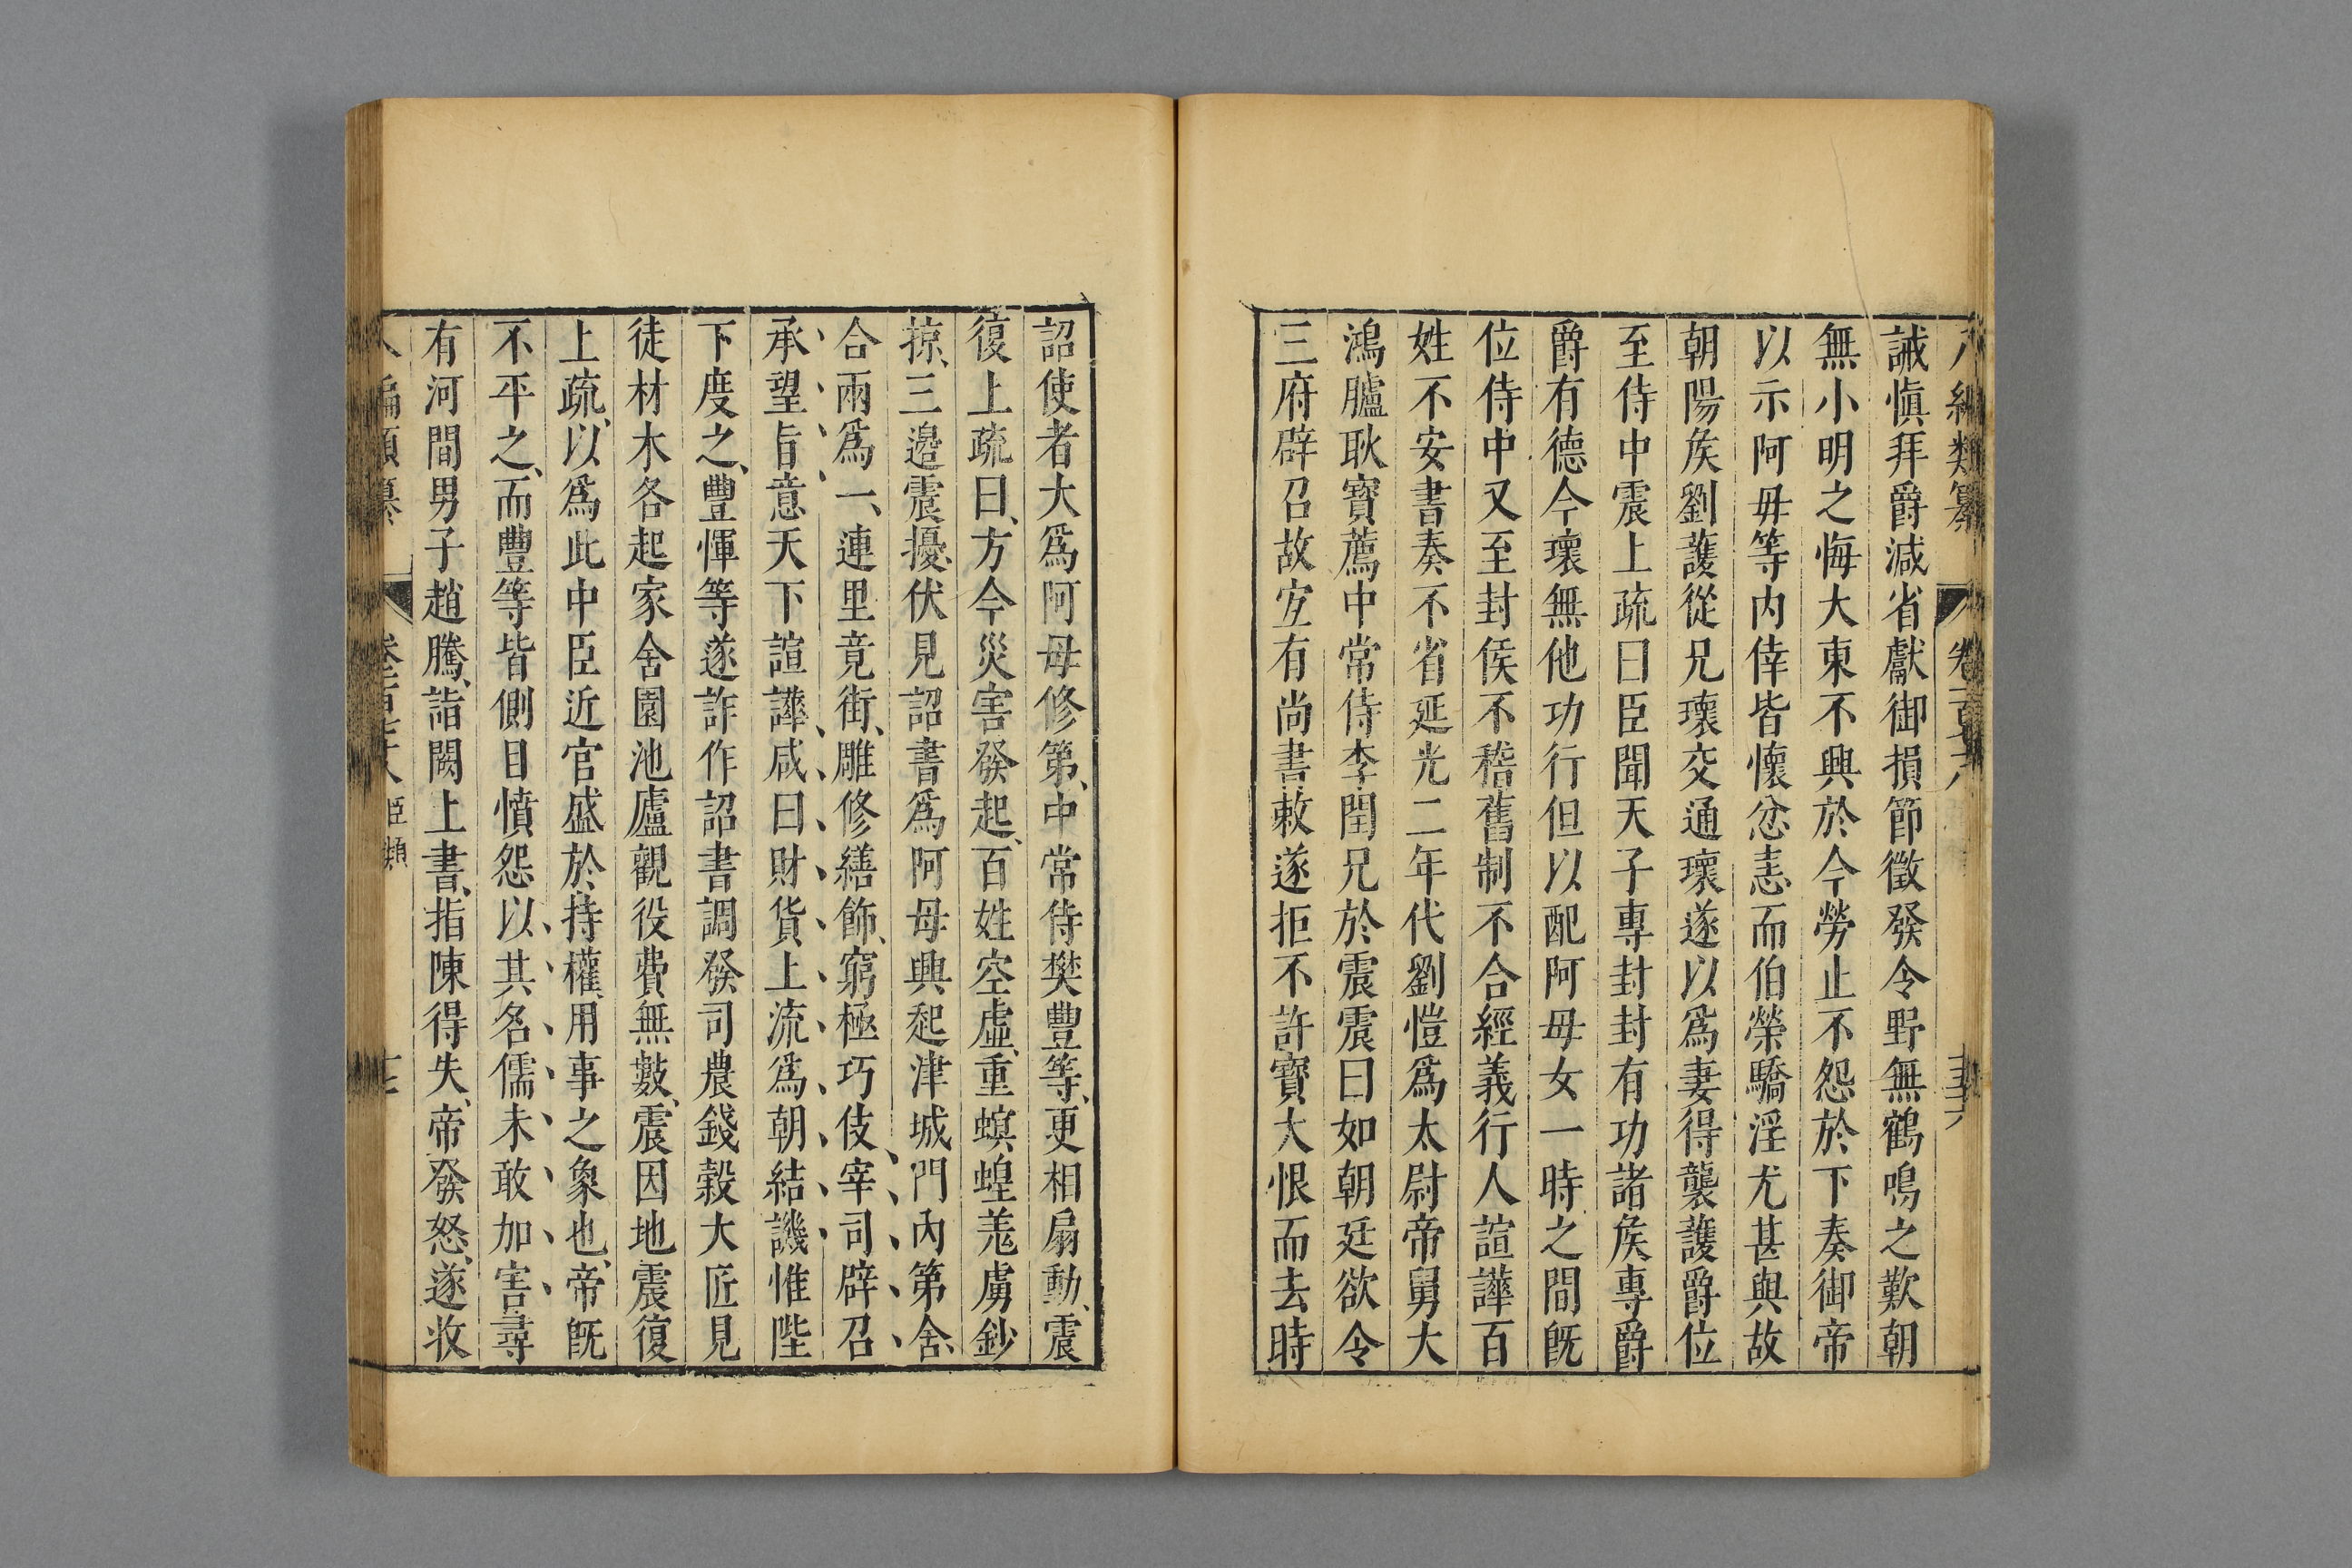 八編類纂 卷二百七十八
誡愼拜爵減省獻御損節徵發令野無鶴鳴之歎朝
無小明之悔大東不興於今勞止不怨於下奏御帝
以示阿毋等內倖皆懷忿恚而伯榮驕淫尤甚與故
朝陽矦劉護從兄瓌交通瓌遂以爲妻得襲護爵位
至侍中震上疏曰臣聞天子專封封有功諸矦專爵
爵有德今瓌無他功行但以配阿母女一時之間旣
位侍中又至封侯不稽舊制不合經義行人諠譁百
姓不安書奏不省延光二年代劉愷爲太尉帝舅大
鴻臚耿寶薦中常侍李閏兄於震震曰如朝廷欲令
三府辟召故宐有尚書敕遂拒不許寶大恨而去時
詔使者大爲阿母修第、中常侍樊豐等、更相扇動、震
復上疏曰、方今災害發起、百姓空虛、重螟蝗羗虜鈔
掠、三邉震擾、伏見詔書爲阿母興起津城門內第舍、
合兩爲一、連里竟街、雕修繕飾、窮極巧伎宰司辟召
承望旨意天下諠譁咸曰財貨上流爲朝結譏惟陛
下度之、豐惲等遂詐作詔書調發司農錢穀大匠見
徒材木各起家舍園池廬觀役費無數、震因地震復
上疏、以爲此中臣近官盛於持權用事之象也、帝旣
不平之、而豐等皆側目憤怨以其名儒未敢加害尋
有河間男子趙騰、詣闕上書、指陳得失、帝發怒、遂收